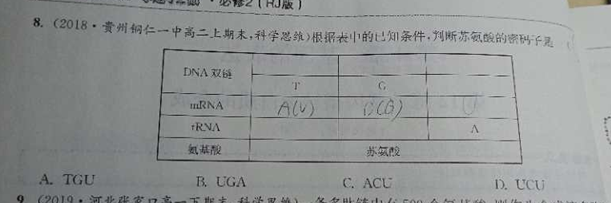 必修2（RJ版）
8. (2018·贵州铜仁一中高二上期末,科学思维)根据表中的已知条件,判断苏氨酸的密码子是
DNA 双链
T G
mRNA A(U) C(G) U
tRNA A
氨基酸 苏氨酸
A. TGU B. UGA C. ACU D. UCU